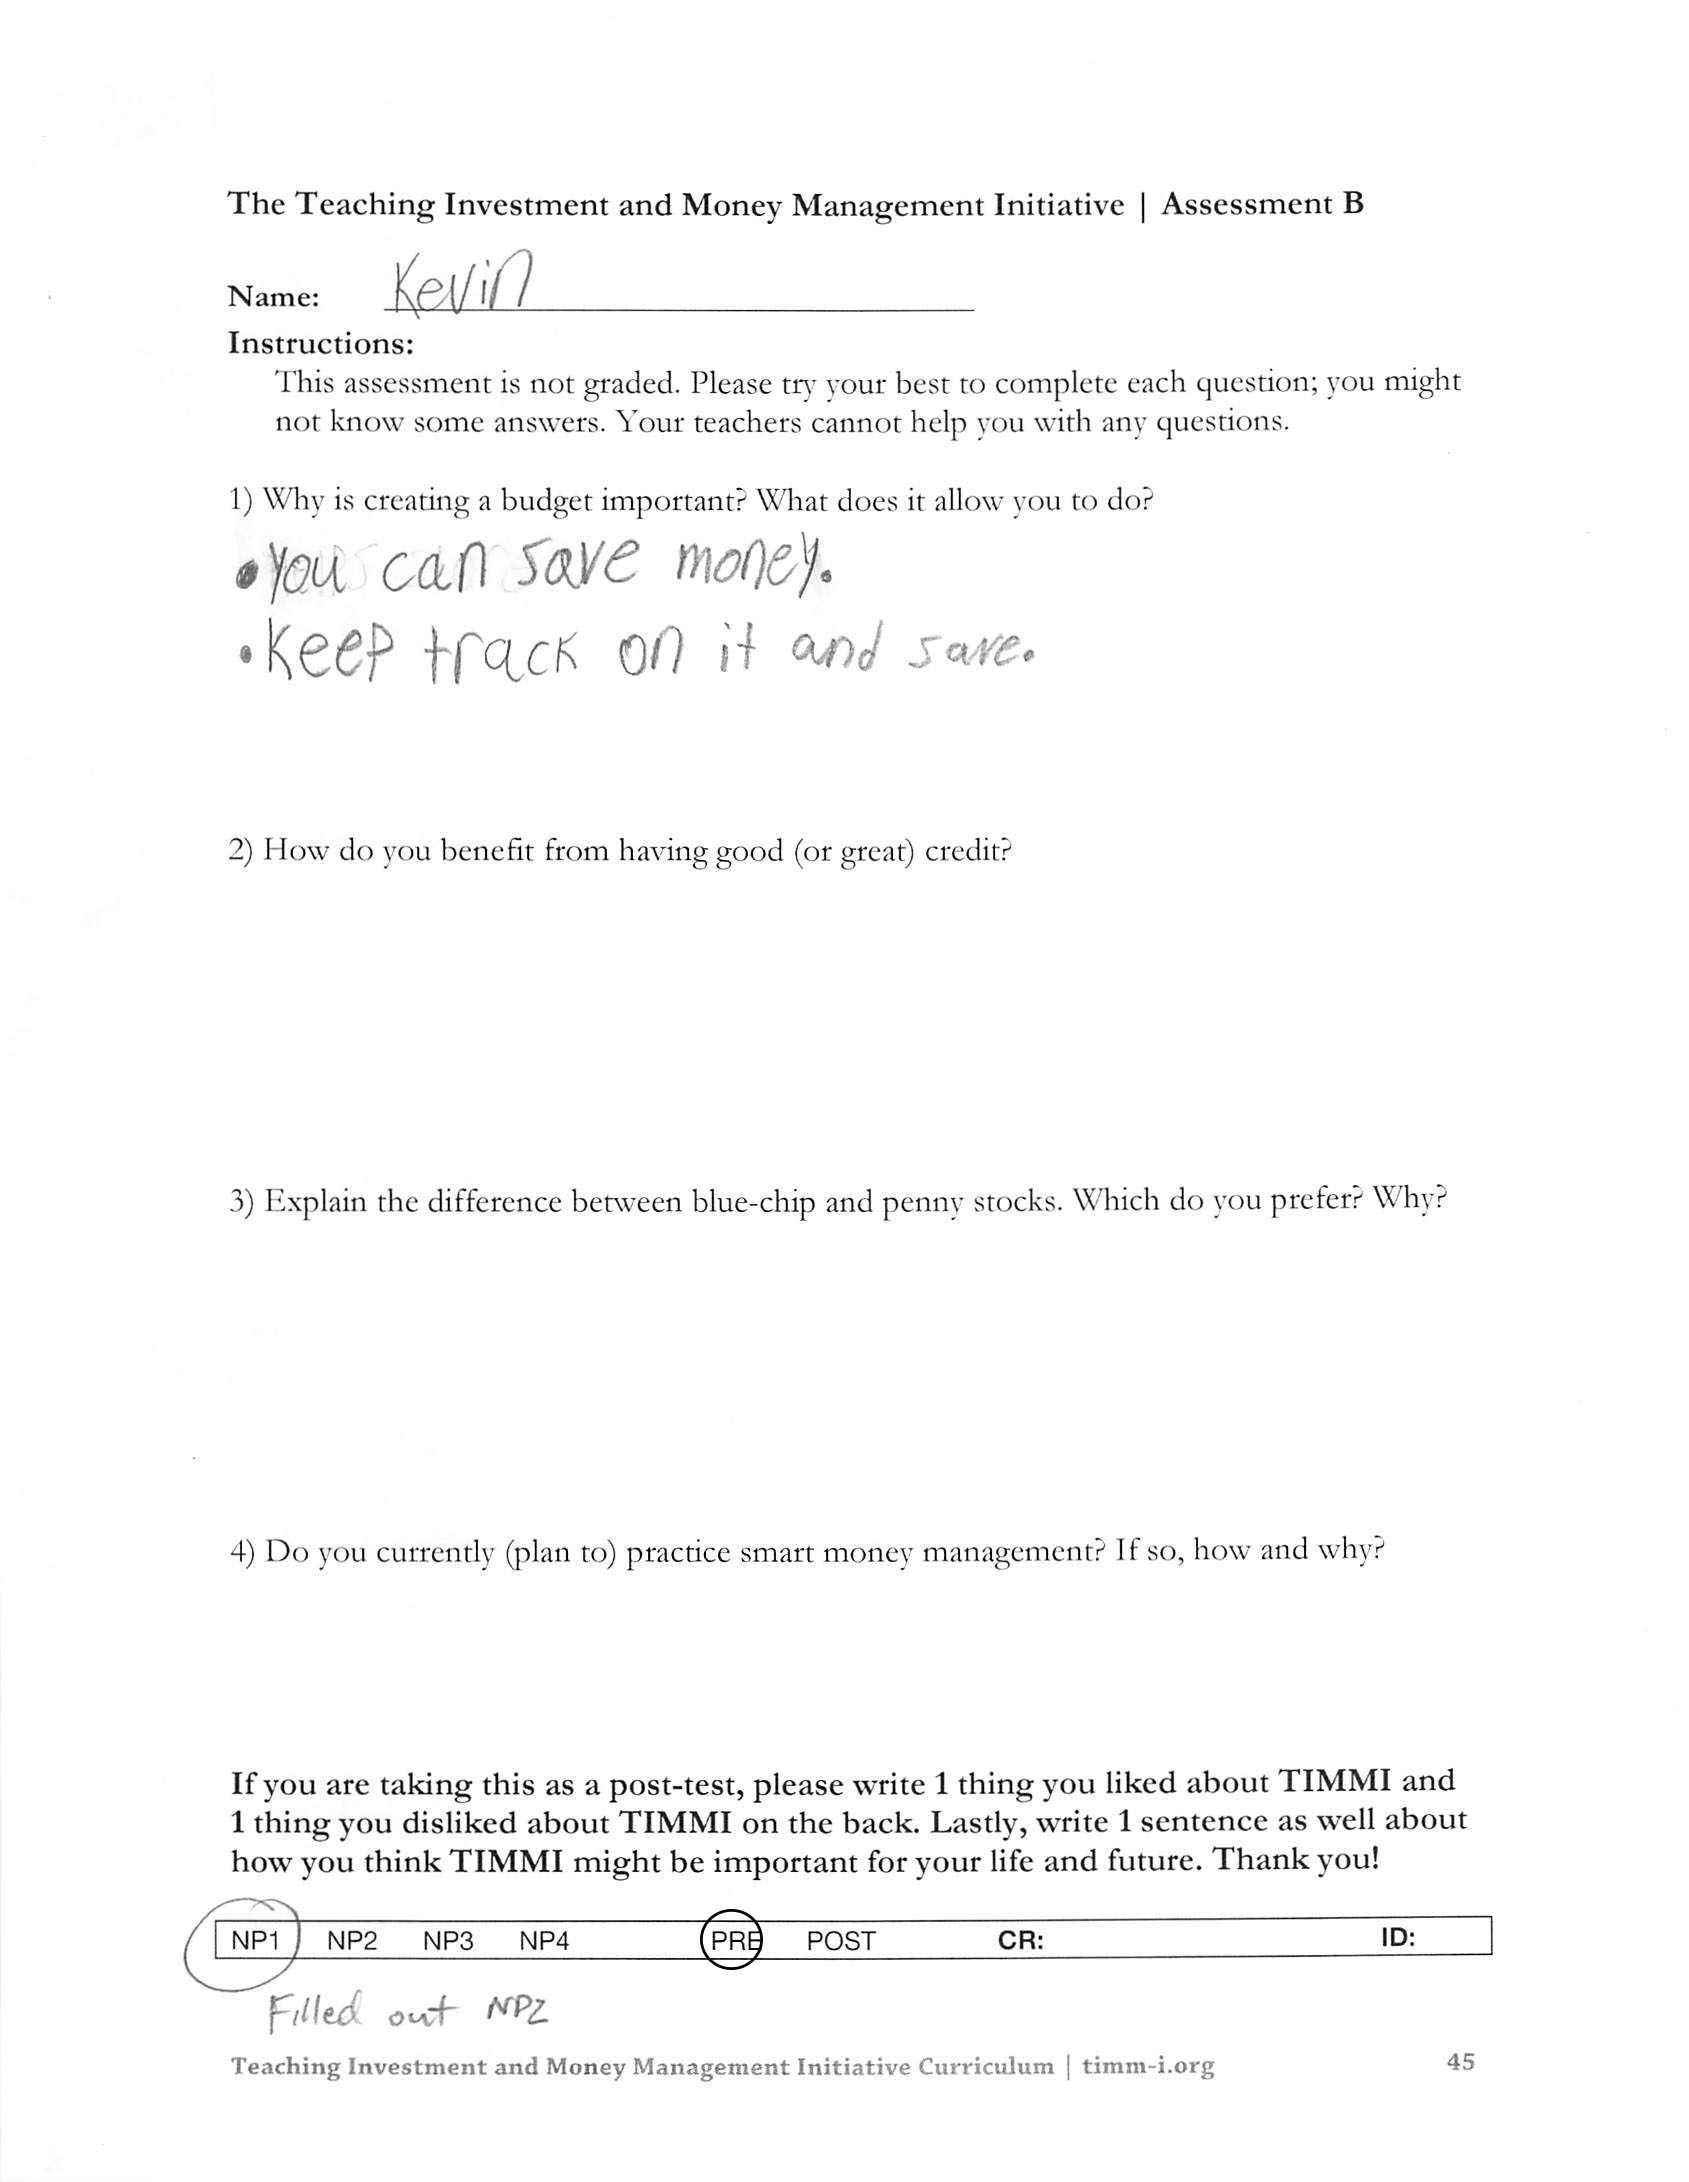 The Teaching Investment and Money Management Initiative | Assessment B
Name: Kevin
Instructions:
This assessment is not graded. Please try your best to complete each question; you might
not know some answers. Your teachers cannot help you with any questions.
1) Why is creating a budget important? What does it allow you to do?
• You can save money.
• Keep track on it and save.
2) How do you benefit from having good (or great) credit?
3) Explain the difference between blue-chip and penny stocks. Which do you prefer? Why?
4) Do you currently (plan to) practice smart money management? If so, how and why?
If you are taking this as a post-test, please write 1 thing you liked about TIMMI and
1 thing you disliked about TIMMI on the back. Lastly, write 1 sentence as well about
how you think TIMMI might be important for your life and future. Thank you!
NP1 NP2 NP3 NP4 PRE POST CR: ID:
Filled out NP2
Teaching Investment and Money Management Initiative Curriculum | timm-i.org 45